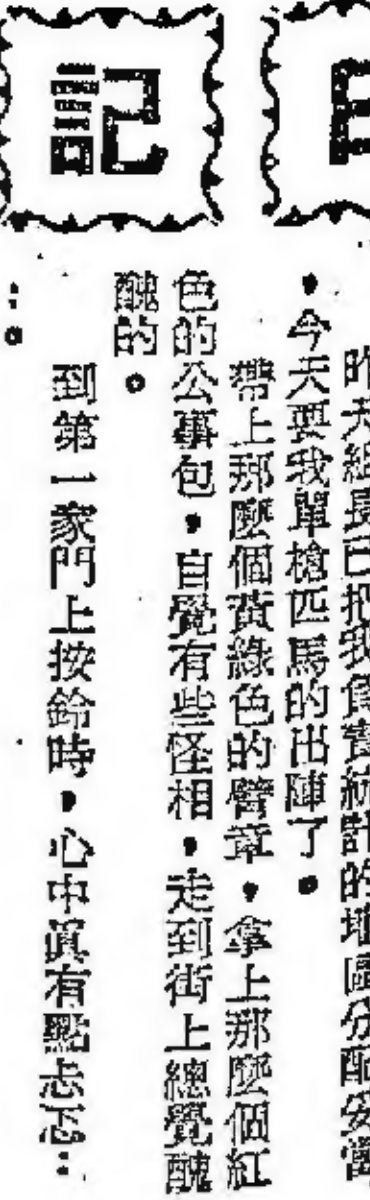 日記
昨天組長已把我負責統計的地區分配妥當
，今天要我單槍匹馬的出陣了。
帶上那麼個黃綠色的臂章，拿上那麼個紅
色的公事包，自覺有些怪相，走到街上總覺醜
醜的。
到第一家門上按鈴時，心中眞有點忐忑：
：。